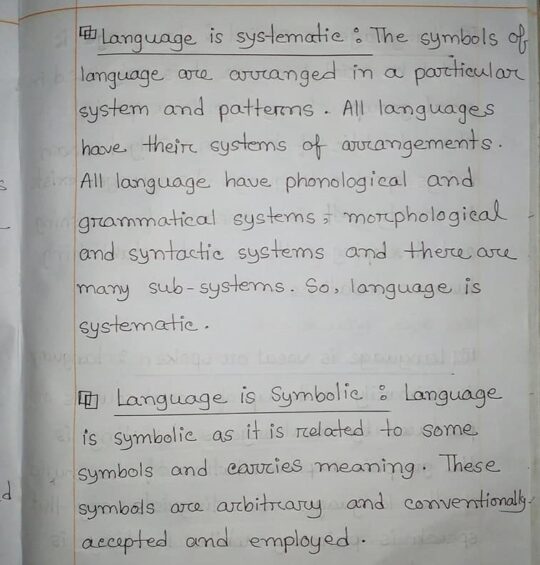 Language is systematic : The symbols of
language are arranged in a particular
system and patterns. All languages
have their systems of arrangements.
All language have phonological and
grammatical systems; morphological
and syntactic systems and there are
many sub-systems. So, language is
systematic.
Language is Symbolic : Language
is symbolic as it is related to some
symbols and carries meaning. These
symbols are arbitrary and conventionally
accepted and employed.